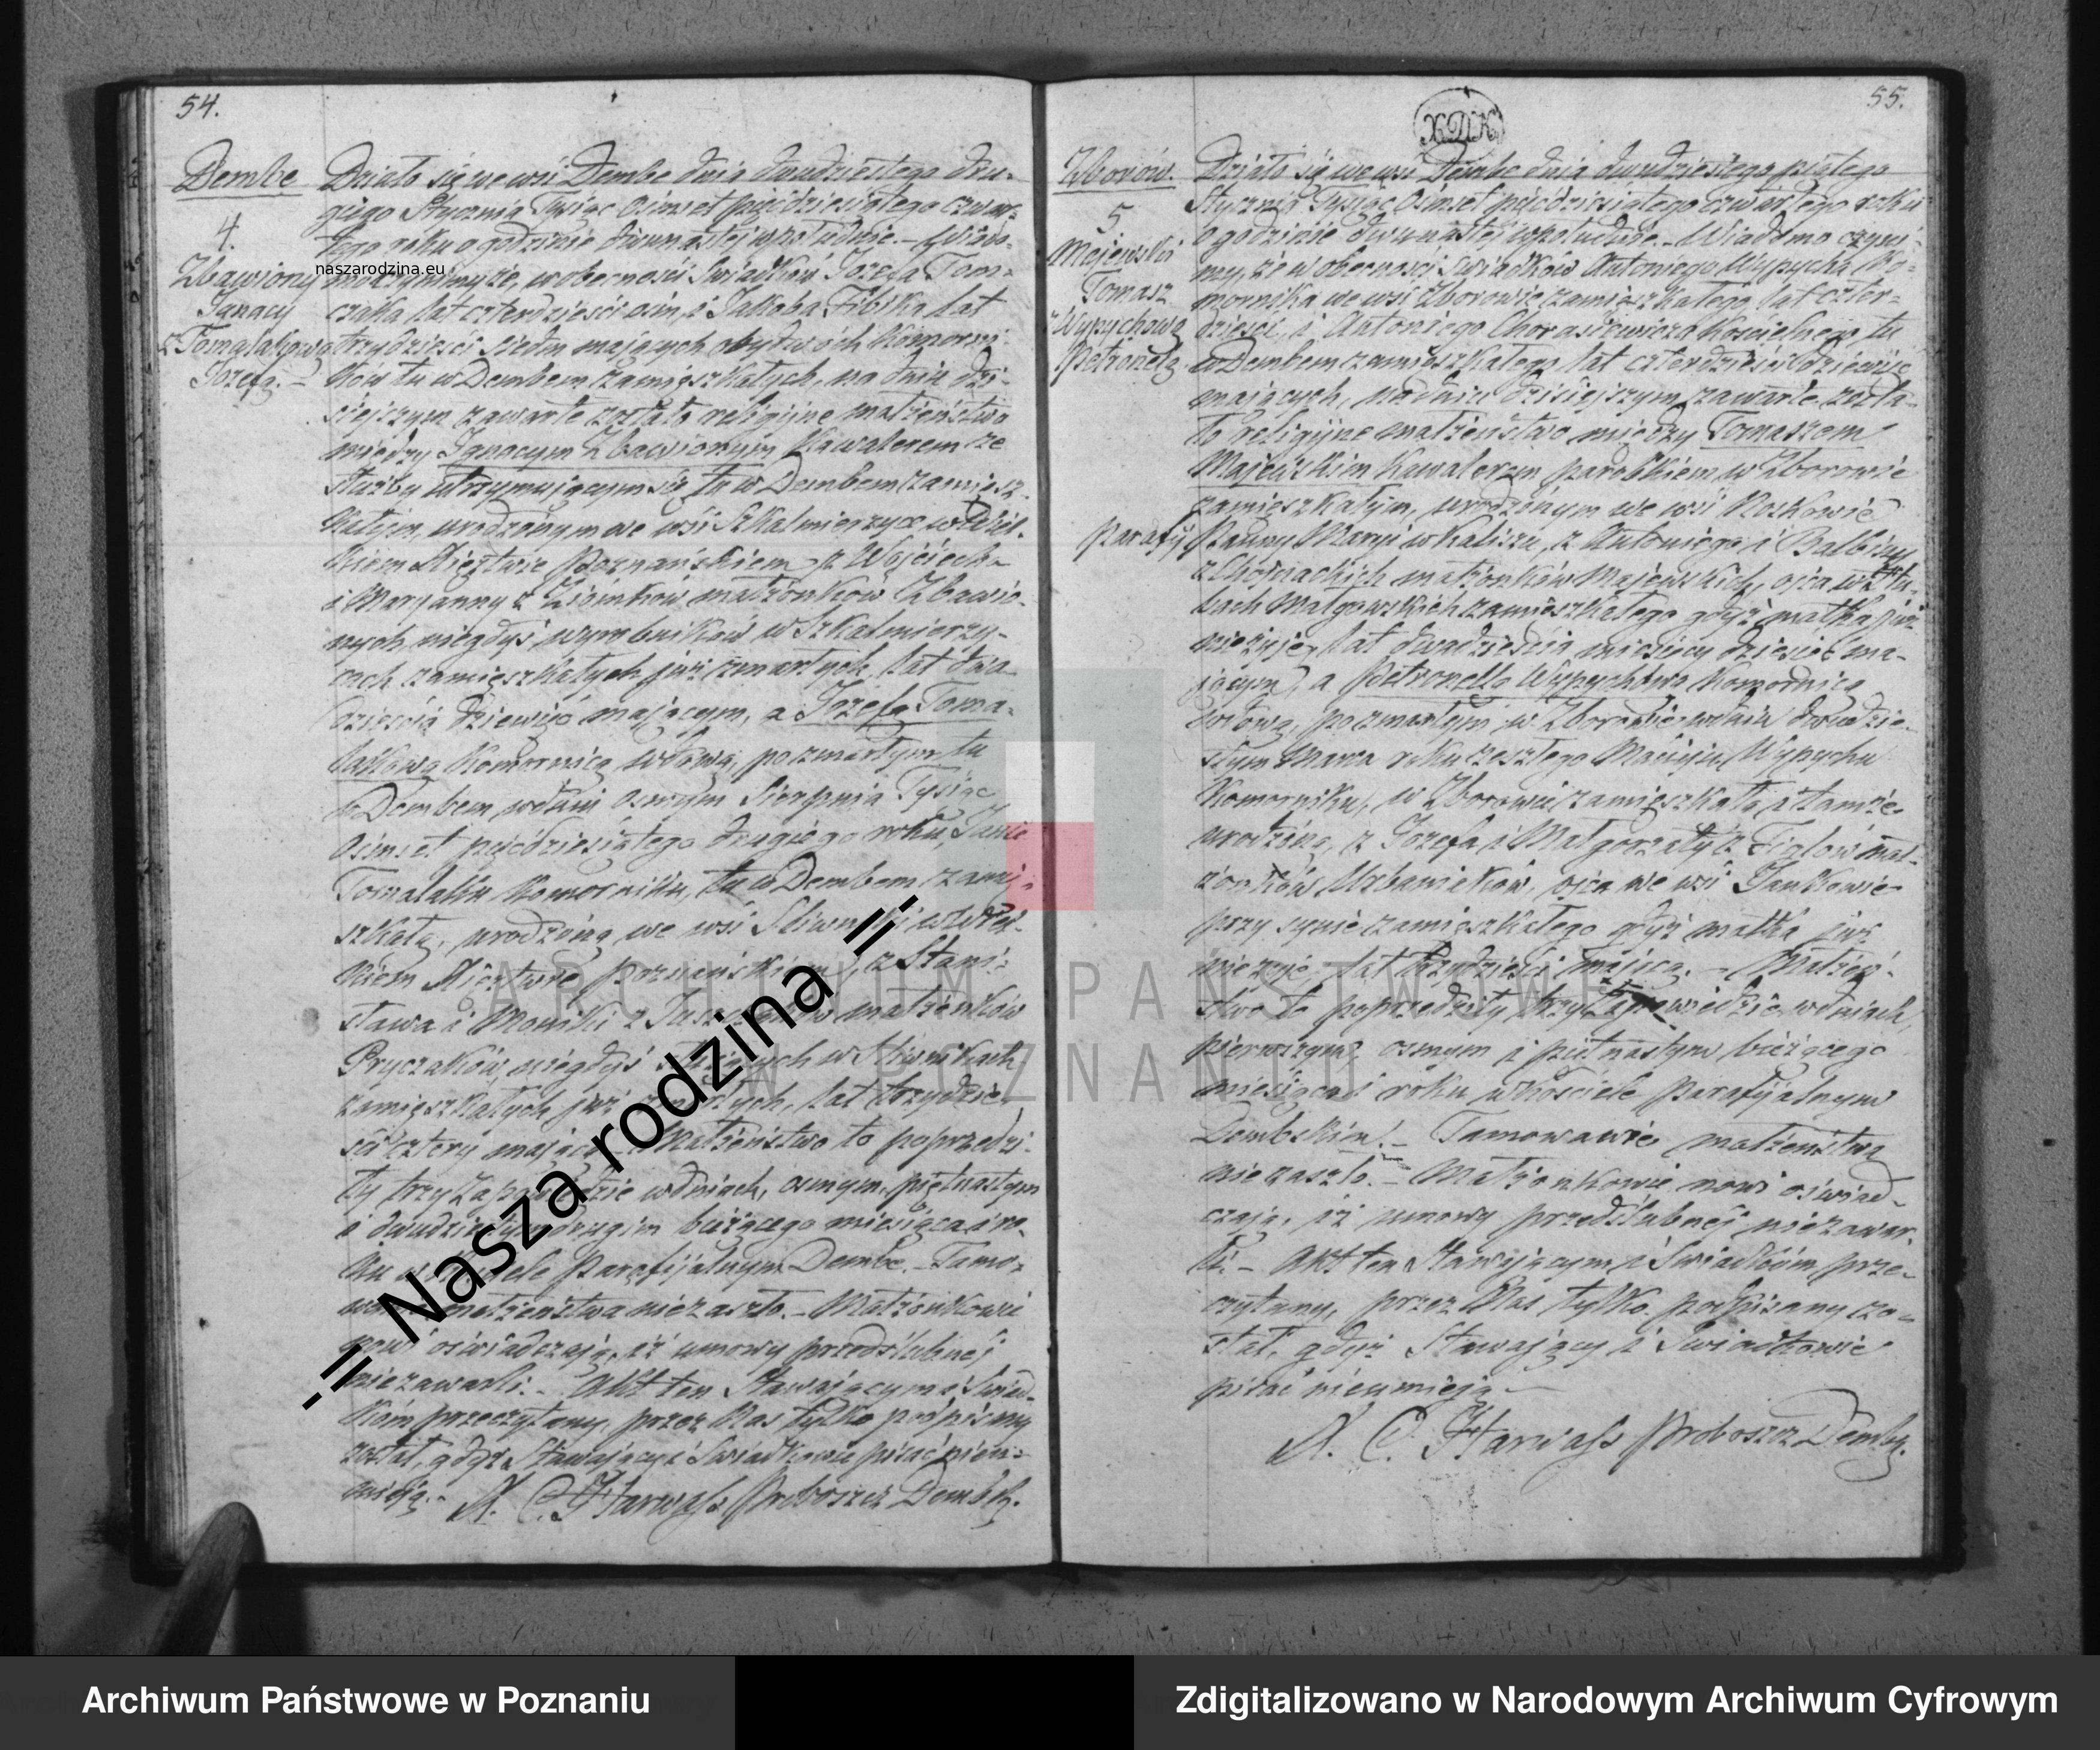 54.
Dembe
4.
Zbawiony
Ignacy
z Tomalakową
Józefą. –
Działo się we wsi Dembe dnia dwudziestego dru-
giego Stycznia Tysiąc Osimset pięćdziesiątego czwar-
tego roku o godzinie dwunastej wpołudnie. – Wiado-
mo czynimy, że w obecności Świadków Józefa Tom-
czaka lat czterdzieści osm, i Jakóba lat
trzydzieści siedm mających obydwóch Komorni-
ków tu w Dembem zamięszkałych, na dniu dzi-
siejszym zawarte zostało religijne małżeństwo
między Ignacym Zbawionym Kawalerem ze
służby utrzymującym się tu w Dembem zamięsz-
kałym, urodzonym we wsi Szkalmierzyce w Wiel-
kiem Xięztwie Poznańskiem z Wojciecha
i Maryanny z małżonków Zbawio-
nych niegdyś wyrobników w Szkalmierzy-
cach zamięszkałych już zmarłych, lat dwa-
dzieścia dziewięć mającym, a Józefą Toma-
lakową Komornicą wdową, po zmarłym tu
w Dembem w dniu osmym Sierpnia Tysiąc
Osimset pięćdziesiątego drugiego roku, Janie
Tomalaku Komorniku, tu w Dembem zamię-
szkałą, urodzoną we wsi Śliwniki w Wiel-
kiem Xięztwie Poznańskiem, z Stani-
sława i Moniki z małżonków
Pryczaków, niegdyś w Śliwnikach
zamięszkałych już zmarłych, lat trzydzie-
ści cztery mającą. – Małżeństwo to poprzedzi-
ły trzy Zapowiedzie w dniach, osmym, piętnastym
i dwudziestym drugim bieżącego miesiąca i ro-
ku w Kościele Parafijalnym Dembe. – Tamo-
wanie małżeństwa niezaszło. – Małżonkowie
nowi oświadczają, iż umowy przedślubnej
niezawarli. – Akt ten Stawającym i Świad-
kom przeczytany, przez Nas tylko podpisany
został, gdyż Stawający i Świadkowie pisać nieu-
mieją. – X. C. Harwass Proboszcz Dembsk.
55.
XDK
Zborów.
5
Majewski
Tomasz
z Wypychową
Petronelą
Działo się we wsi Dembe dnia dwudziestego piątego
Stycznia Tysiąc Osimset pięćdziesiątego czwartego roku
o godzinie dwunastej wpołudnie. – Wiadomo czyni-
my, że w obecności Świadków Antoniego Wypycha Ko-
mornika we wsi Zborowie zamięszkałego, lat czter-
dzieści, i Antoniego Chorasiewicza Kościelnego, tu
w Dembem zamięszkałego lat czterdzieści dziewięć
mających, na dniu dzisiejszym zawarte zosta-
ło religijne małżeństwo między Tomaszem
Majewskim Kawalerem parobkiem w Zborowie
zamięszkałym, urodzonym we wsi Noskowie
Parafij Panny Maryi w Kaliszu, z Antoniego i Balbiny
z małżonków Majewskich, ojca w Hu-
bach Małgowskich zamięszkałego gdyż matka już
nieżyje, lat dwadzieścia miesięcy dziesięć ma-
jącym, a Petronellą Wypychową Komornicą
wdową, po zmarłym w Zborowie w dniu dwudzie-
stym Marca roku zeszłego Macieju Wypychu
Komorniku, w Zborowie zamięszkałą i tamże
urodzoną, z Józefa i Małgorzaty z Figlów mał-
żonków Urbaniaków, ojca we wsi Jankowie
przy synie zamięszkałego gdyż matka już
nieżyje, lat trzydzieści mającą. – Małżeń-
stwo to poprzedziły trzy Zapowiedzie w dniach
pierwszym osmym i piętnastym bieżącego
miesiąca i roku w Kościele Parafijalnym
Dembskim. – Tamowanie małżeństwa
niezaszło. – Małżonkowie nowi oświad-
czają, iż umowy przedślubnej niezawar-
li. – Akt ten Stawającym i Świadkom prze-
czytany, przez Nas tylko podpisany zo-
stał, gdyż Stawający i Świadkowie
pisać nieumieją –
X. C. Harwass Proboszcz Dembsk.
naszarodzina.eu
-= Nasza rodzina =-
ARCHIWUM PAŃSTWOWE
W POZNANIU
Archiwum Państwowe w Poznaniu
Zdigitalizowano w Narodowym Archiwum Cyfrowym